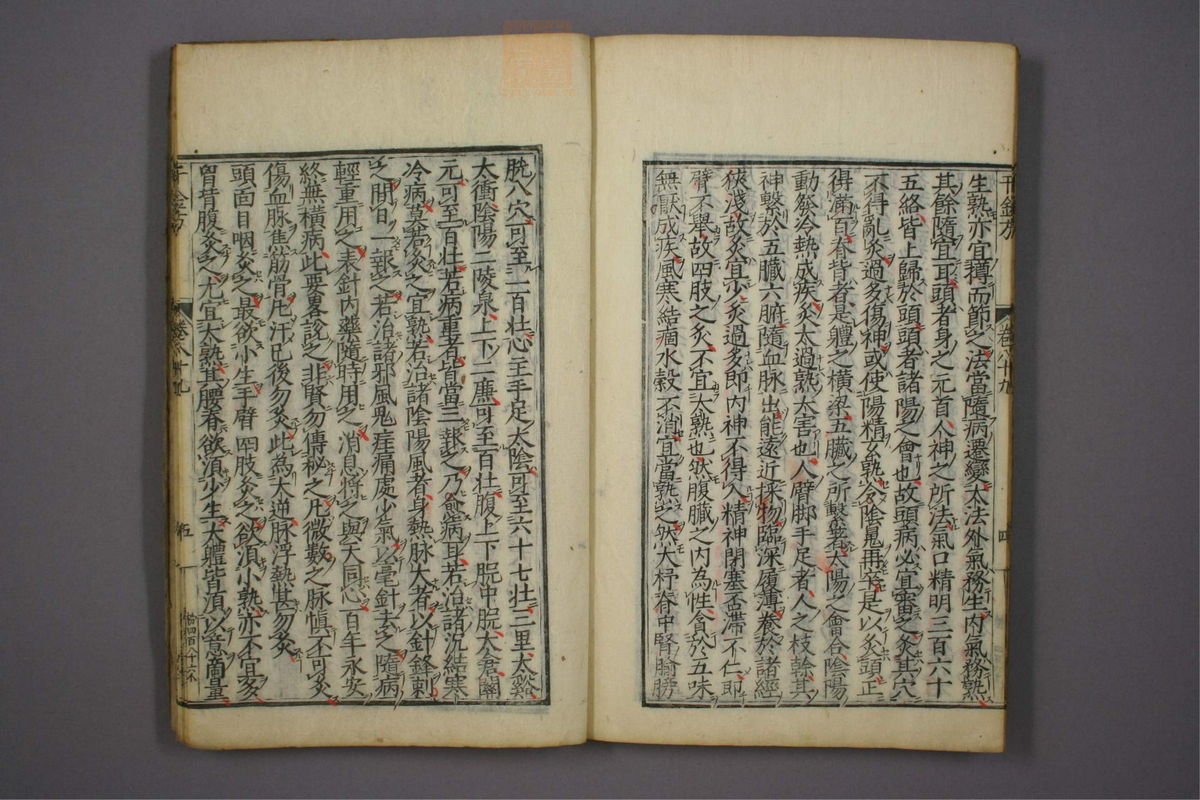 生熟亦宜撙而節之法當隨病遷變大法外氣務生內氣務熟
其餘隨宜耳頭者身之元首人神之所法氣口精明三百六十
五絡皆上歸於頭頭者諸陽之會也故頭病必宜審之灸其穴
不得亂灸過多傷神或使陽精玄熟令陰魄再卒是以灸頭正
得滿百脊背者是軀之橫梁五臟之所繫著太陽之會合陰陽
動發冷熱成疾灸太過熟大害也人臂脚手足者人之枝幹其
神繫於五臟六腑隨血脉出能遠近採物臨深履薄養於諸經
狹淺故灸宜少灸過多即內神不得入精神閉塞否滯不仁即
臂不舉故四肢之灸不宜太熟也然腹臟之內為性貪於五味
無厭成疾風寒結痼水穀不消宜當熟之然大杼脊中腎腧膀
胱八穴可至二百壯心主手足太陰可至六十七壯三里太谿
太衝陰陽二陵泉上下二廉可至百壯腹上下脘中脘太倉關
元可至百壯若病重者皆當三報之乃愈病耳若治諸沉結寒
冷病莫若灸之宜熟若治諸陰陽風者身熱脉大者以針鋒刺
之間日一報之若治諸邪風鬼疰痛處少氣以毫針去之隨病
輕重用之表針內藥隨時用之消息將之與天同心百年永安
終無橫病此要略說之非賢勿傳秘之凡微數之脉慎不可灸
傷血脉焦筋骨凡汗已後勿灸此為大逆脉浮熱甚勿灸
頭面目咽灸之最欲小生手臂四肢灸之欲須小熟亦不宜多
胷背腹灸之尤宜大熟其腰脊欲須少生大軆皆須以意商量
千金方
卷八十九
四
千金方
卷八十九
五